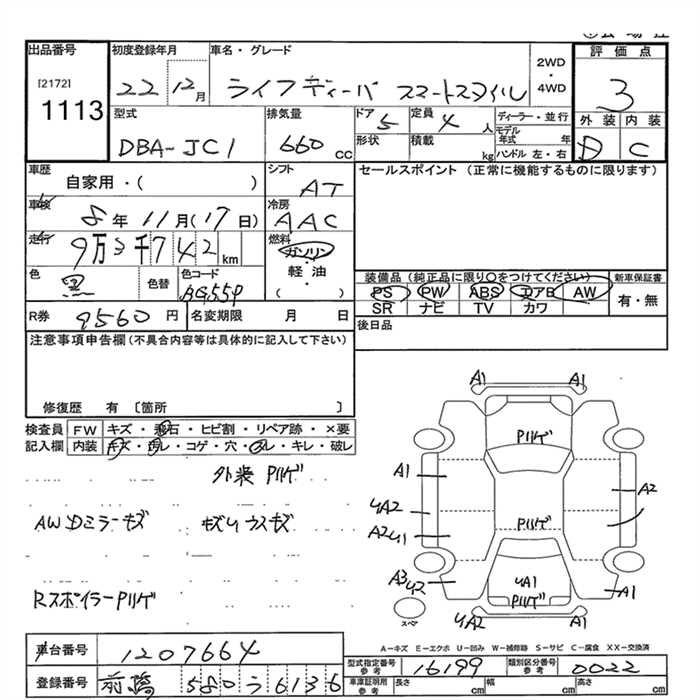 出品番号 初度登録年月 車名・グレード 2WD・4WD 評価点
[2172]
1113 22 12月 ライフ ディーバ スマートスタイル 3
型式 排気量 ドア 5 定員 4 人 ディーラー・並行 外装 内装
DBA-JC1 660 cc 形状 積載 kg モデル年式 年 ハンドル 左・右 D C
車歴 自家用・( ) シフト AT セールスポイント (正常に機能するものに限ります)
車検 8年 11月(17日) 冷房 AAC
走行 9万3千742km 燃料 ガソリン
軽油
( )
色 黒 色替 色コード 装備品(純正品に限り○をつけてください) 新車保証書
PS PW ABS エアB AW 有・無
SR ナビ TV カワ
R券 9560円 名変期限 月 日 後日品
注意事項申告欄(不具合内容等は具体的に記入して下さい)
修復歴 有 〔箇所 〕
検査員 FW キズ・飛石・ヒビ割・リペア跡・×要
記入欄 内装 キズ・ヨレ・コゲ・穴・スレ・キレ・破レ
外装 Pリゲ
AW Dミラーキズ キズU ウスキズ
Rスポイラー Pリゲ
A1 A1
Pリゲ
A1 A2
UA2 Pリゲ
A2U1
A3U2 UA1 A1
Pリゲ
スペア UA2 A1
A-キズ E-エクボ U-凹み W-補修跡 S-サビ C-腐食 XX-交換済
車台番号 1207664
型式指定番号 参考 16199 類別区分番号 参考 0022
登録番号 前橋 580 う 6136
車庫証明用 参考 長さ cm 幅 cm 高さ cm